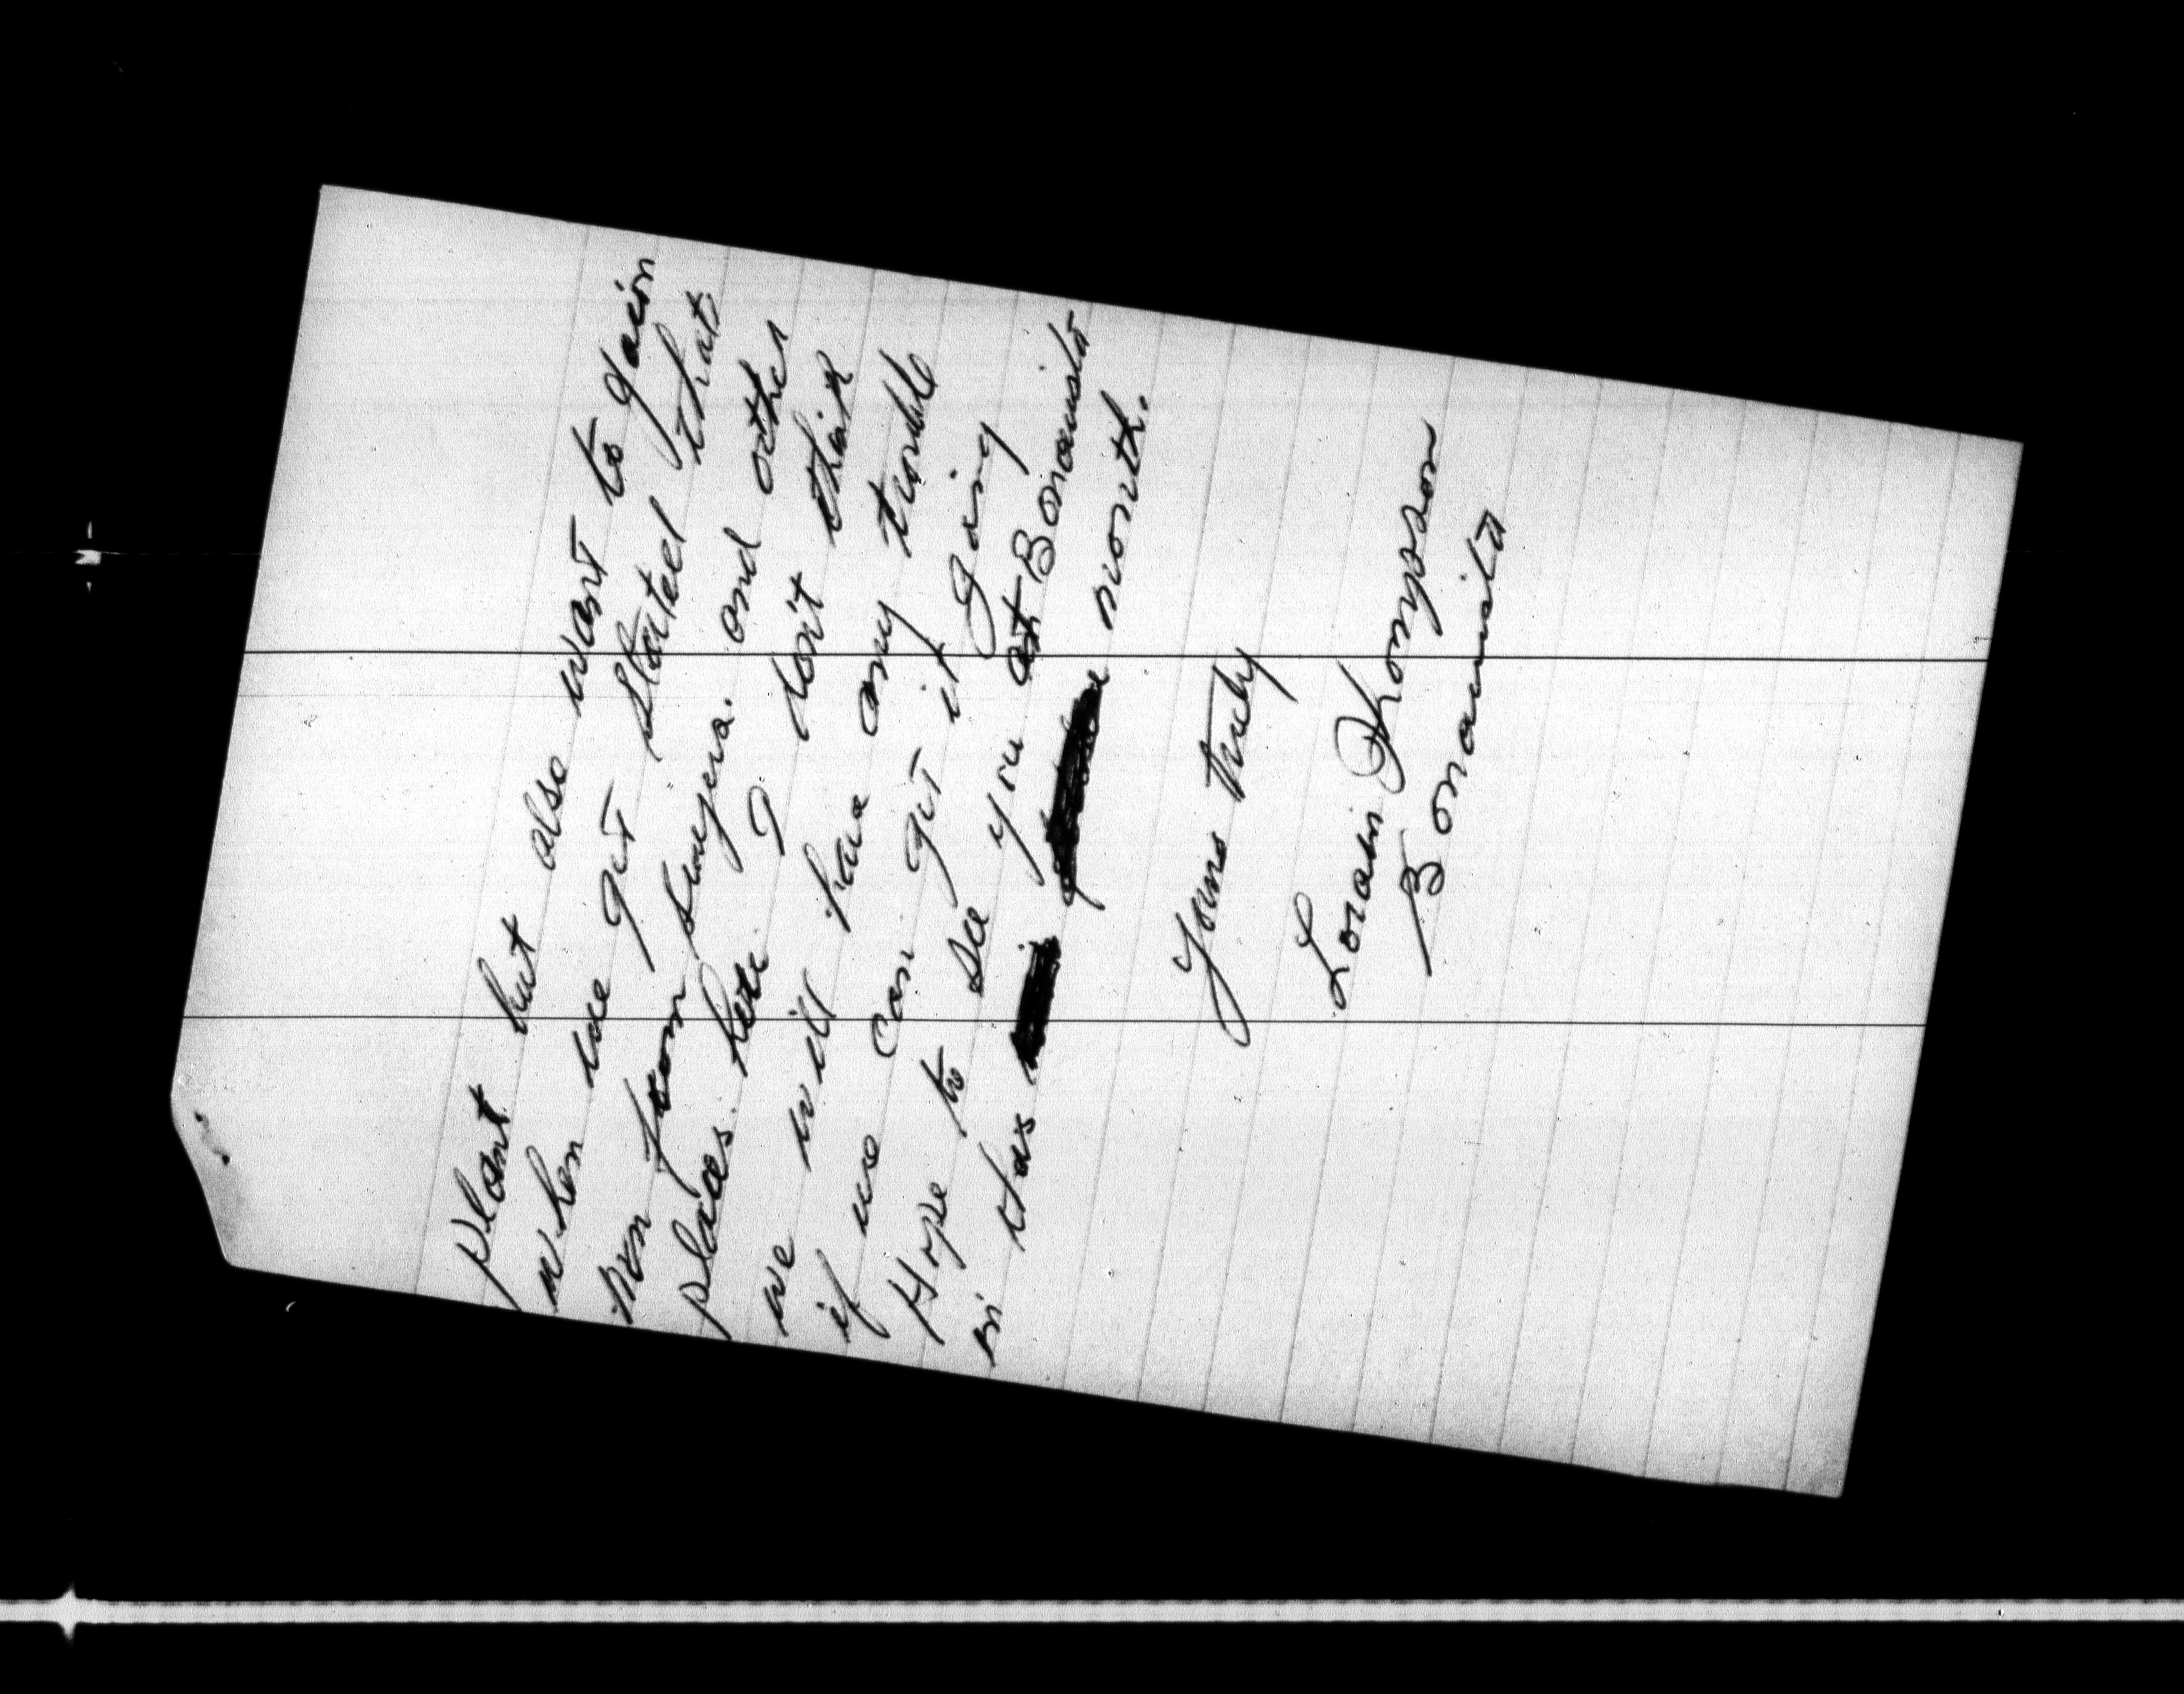 plant but also want to gain
when we git stated that
non from Suyers. and other
places. here. I don't think
we will have any trouble
if we can git it going
Hope to see you at Bonausito
in thas month.
Yours truly
Lorain Thompson
Bonausita